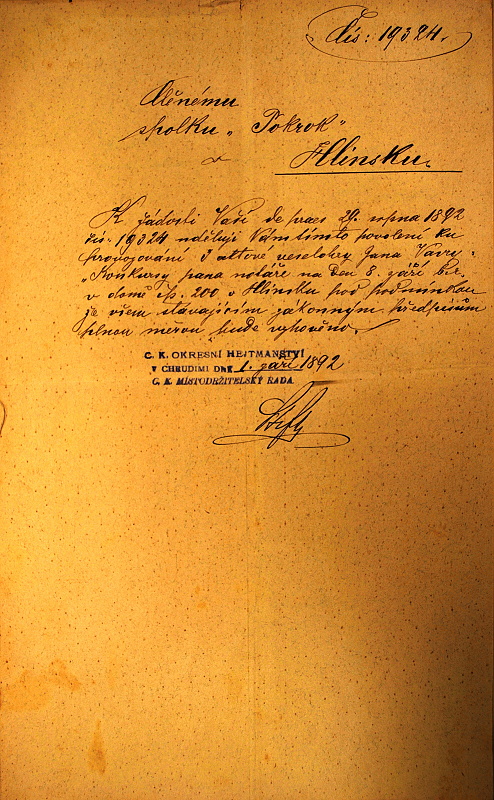 Čís: 19324.
Ctěnému
spolku „Pokrok"
v
Hlinsku.
K žádosti Vaší de praes 29. srpna 1892
čís. 19324 uděluji Vám tímto povolení ku
provozování 3 aktové veselohry Jana Vávry
„Konkursy pana notáře na den 8. září t.r.
v domě čp. 200 v Hlinsku pod podmínkou
že všem stávajícím zákonným předpisům
plnou měrou bude vyhověno.
C. K. OKRESNÍ HEJTMANSTVÍ
V CHRUDIMI DNE 1. září 1892
C. K. MÍSTODRŽITELSKÝ RADA